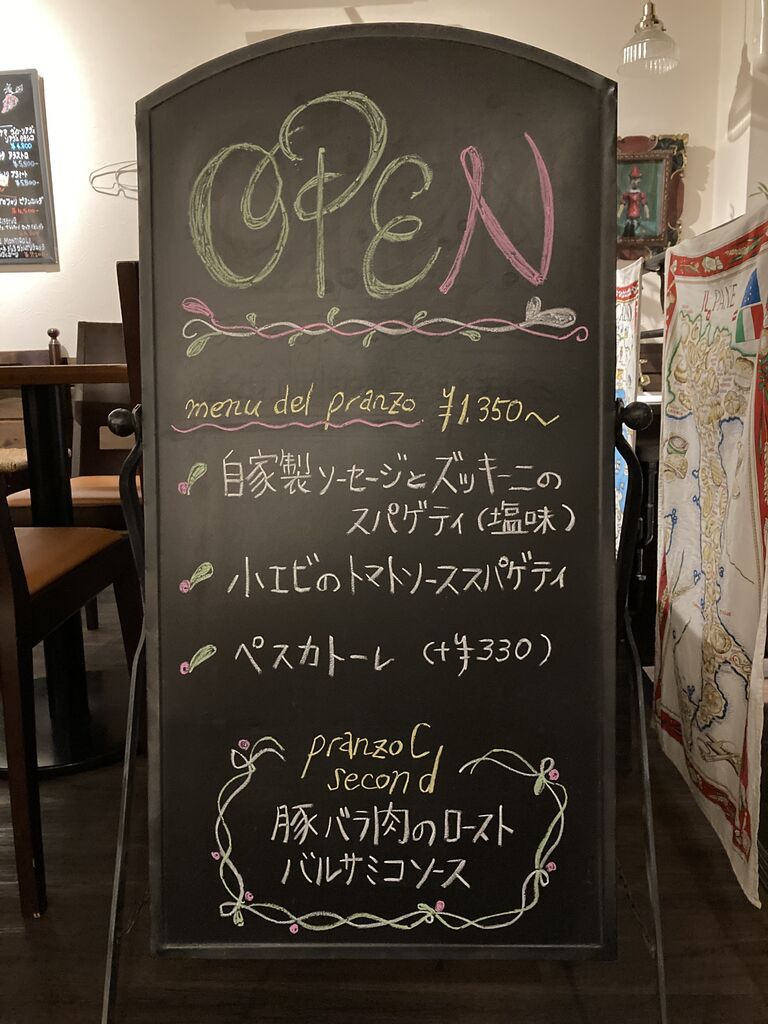 OPEN
menu del pranzo ¥1.350〜
自家製ソーセージとズッキーニの
スパゲティ(塩味)
小エビのトマトソーススパゲティ
ペスカトーレ (+¥330)
pranzo C
second
豚バラ肉のロースト
バルサミコソース
IL PAESE